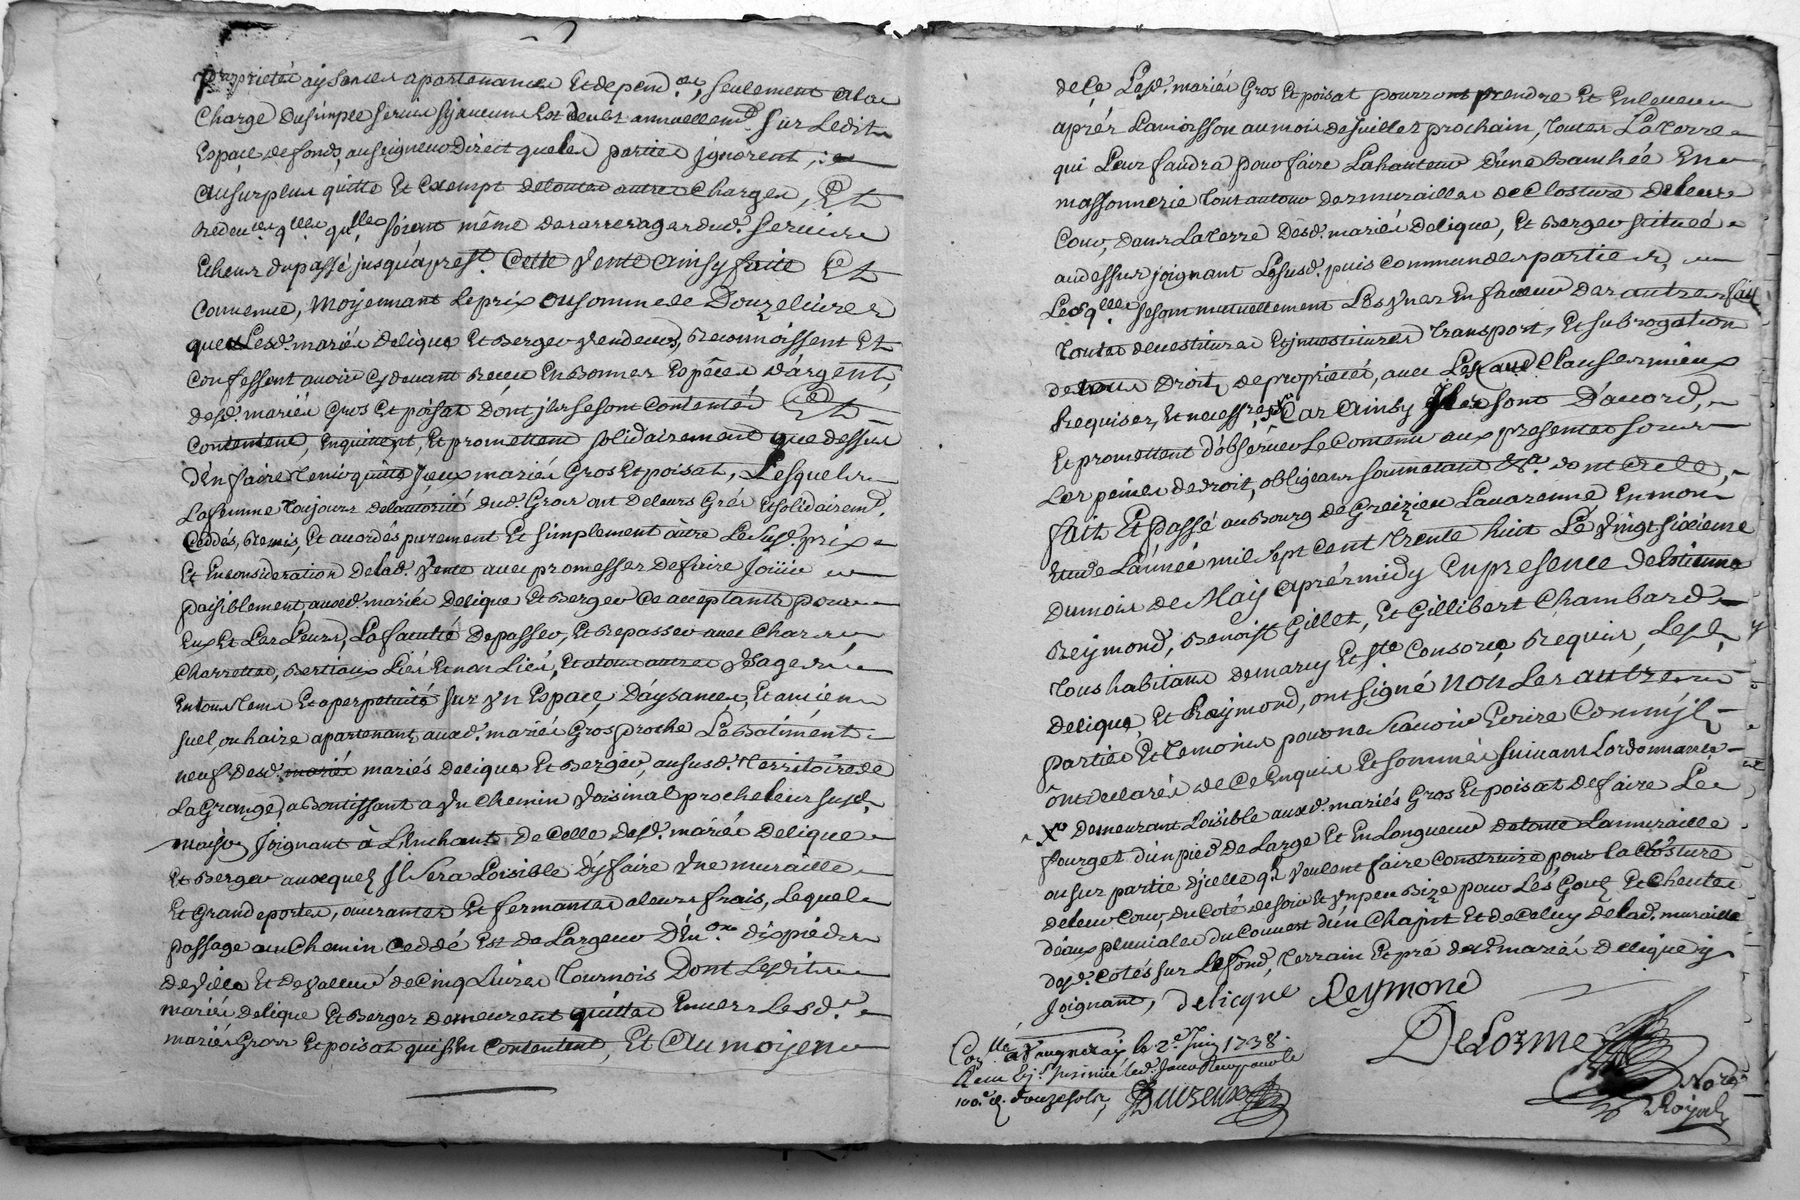 proprietés aysances apartenances Et depend.ces, seulement a la
Charge du simple servis sy aucun Est deubt annuellem.t sur Ledit
Espace de fonds, au seigneur Direct que les parties Ignorent,
au surplus quitte Et Exempt de toutes autres Charges, Et
redev.ces q.lles qu'lles soient même des arrerages dud. servis
Echeus du passé jusqu'a pres.t. Cette vente ainsy faitte Et
Convenue, moyennant le prix ou somme de Douze livres
que Lesd. mariés Delique Et Berger vendeurs, Reconnoissent Et
Confessent avoir Cy devant Receu En Bonnes Espêces d'argent,
desd. mariés Gros Et poisat dont jls se sont Contentés Et
Contentent, En quittent, Et promettent solidairement que dessus
d'En faire tenir quittes Iceux mariés Gros Et poisat, Lesquels
La femme toujours de l'autorité dud. Gros ont de leurs Grés Et solidairem.t
Ceddés, Remis, Et accordés purement Et simplement outre Le susd. prix
Et En consideration de lad. vente avec promesses de faire Joüir
paisiblement, auxd. mariés Delique Et Berger Ce acceptants pour
Eux Et Les Leurs, La faculté de passer, Et Repasser avec Chars,
Charrettes, Bestiaux Liés Et non Liés, Et a tous autres Usages
En tous tems Et a perpetuité sur Un Espace d'aysances, Et ancien
suel, ou haire apartenant, auxd. mariés Gros proche Le Batiment
neuf desd. mariés mariés Delique Et Berger, au susd. territoire de
La Grange, aboutissant a Un Chemin Voisinal proche leur susd.
maison Joignant à L'Enchant de Celle desd. mariés Delique
Et Berger auxquels Il sera Loisible d'y faire Une muraille
Et Grande portes, ouvrantes Et fermantes a leurs frais, Lequel
passage ou Chemin Ceddé Est de Largeur D'En.on dix pieds
de ville Et de valleur de Cinq Livres tournois Dont Lesdits
mariés Delique Et Berger demeurent quittes Envers Lesd.
mariés Gros Et poisat qui s'En Contentent, Et Au moyen
de Ce Lesd. mariés Gros Et poisat pourront prendre Et Enlever
aprés La moisson au mois de Juillet prochain, toutes La terre
qui Leur faudra pour faire La hauteur d'une Banchée En
massonnerie tout autour des murailles de Closture de leur
Cour, dans La terre desd. mariés Delique, Et Berger scituée
au dessus joignant Le susd. puis Commun des parties,
Lesq.lles se sont mutuellement Les Unes En faveur des autres fait
toutes devestitures Et jnvestitures transport, Et subrogation
de tous Droits de proprietés, avec Les Clauses mieux
Requises, Et necess.res Car Ainsy Il Les sont D'accord,
Et promettent d'observer Le Contenu aux presentes sous
Les peines de droit, obligeans soumettans &.a dont acte,
fait Et Passé au Bourg de Greizieu La varenne En mon
Etude L'année mil sept cent trente huit Le vingt sixieme
du mois de May aprés midy En presence de Estienne
Reymond, Benoist Gillet, Et Gillibert Chambard
tous habitans de marcy Et s.te Consorce Requis, Lesd.
Delique, Et Reymond, ont signé non Les autres
parties Et temoins pour ne scavoir Ecrire Comm'jls
ont declarés de Ce Enquis Et sommés suivant L'ordonnance
X.o demeurant Loisible auxd. mariés Gros Et poisat de faire Le
fourget d'un pied de Large Et En Longueur de toutte La muraille
ou sur partie d'jcelle q'ls veulent faire Construire pour la Clôture
de leur Cour, du Coté de soir Et Un peu Bize pour Les Goutz Et Cheutes
d'Eaux pluviales du Couvert d'un Chapit Et de Celuy de lad. muraille
desd. Cotés sur Le fond, terrain Et pré desd. mariés Delique y
Joignant, delicque Reymond
DeLorme
No.re
Royal
Con.llé à Vaugneray le 2.e Juin 1738.
100.e d. Douze sols,